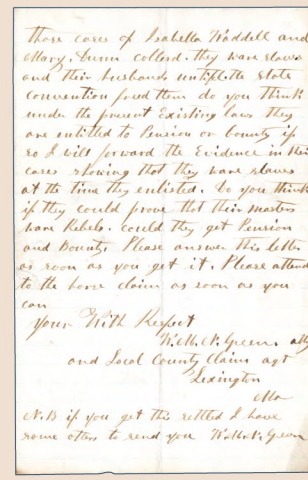 those cases of Isabella Waddell and
Mary Dunn collord. they ware slaves
and their husbands untill the state
convention freed them do you think
under the present Existing laws they
are entitled to Pension or bounty if
so I will forward the Evidence in their
cases showing that they ware slaves
at the time they enlisted. Do you think
if they could prove that their masters
ware Rebels. could they get Pension
and Bounty. Please answer this letter
as soon as you get it. Please attend
to the horse claim as soon as you
can
Your With Respect
W. M. N. Green. atty
and Local County Claim agt
Lexington
Mo
N.B if you get this settled I have
some others to send you W. M. N. Green